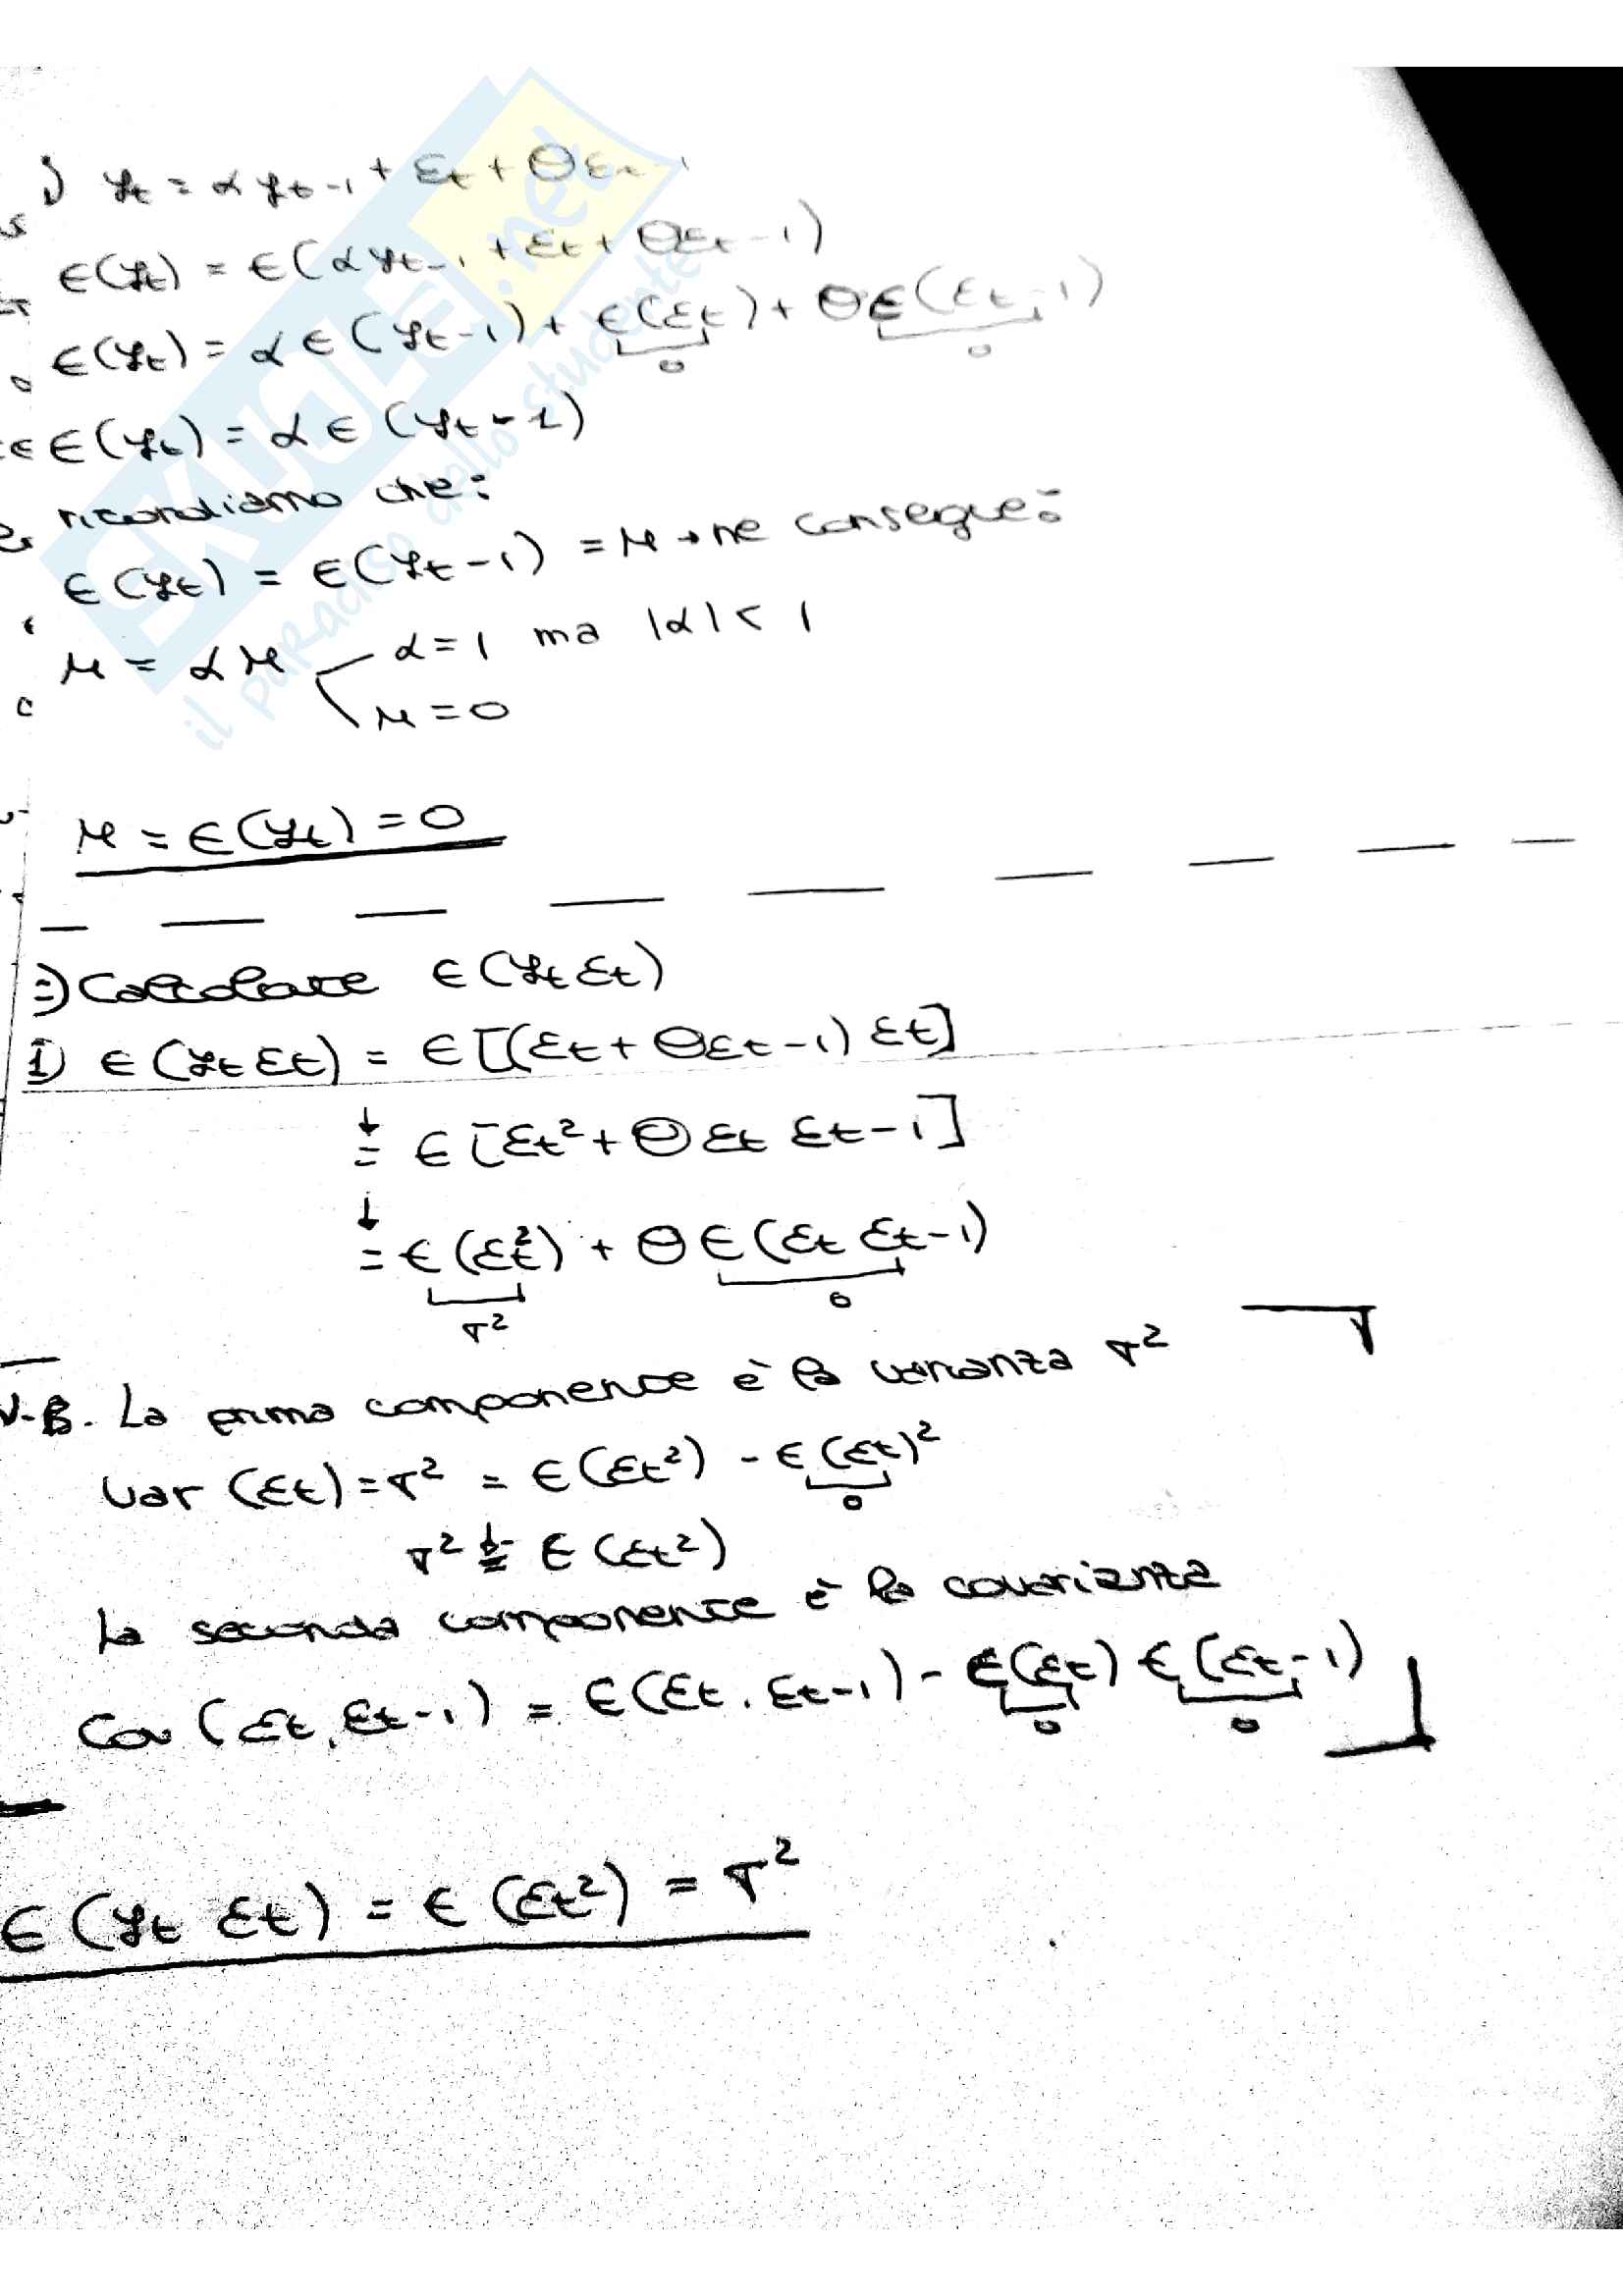 ) yt = α yt-1 + εt + Θ εt-1
E(yt) = E(α yt-1 + εt + Θεt-1)
E(yt) = α E(yt-1) + E(εt) + ΘE(εt-1)
0 0
E(yt) = α E(yt-1)
ricordiamo che:
E(yt) = E(yt-1) = μ → ne consegue:
μ = α μ α=1 ma |α| < 1
μ=0
μ = E(yt) = 0
=) Calcolare E(yt εt)
1) E(yt εt) = E[(εt + Θεt-1) εt]
↓
= E[εt² + Θ εt εt-1]
↓
= E(εt²) + Θ E(εt εt-1)
σ² 0
N.B. La prima componente è la varianza σ²
Var (εt) = σ² = E(εt²) - E(εt)²
0
σ² = E(εt²)
La seconda componente è la covarianza
Cov (εt, εt-1) = E(εt, εt-1) - E(εt) E(εt-1)
0 0
E(yt εt) = E(εt²) = σ²
SKUOLA.net
il paradiso dello studente